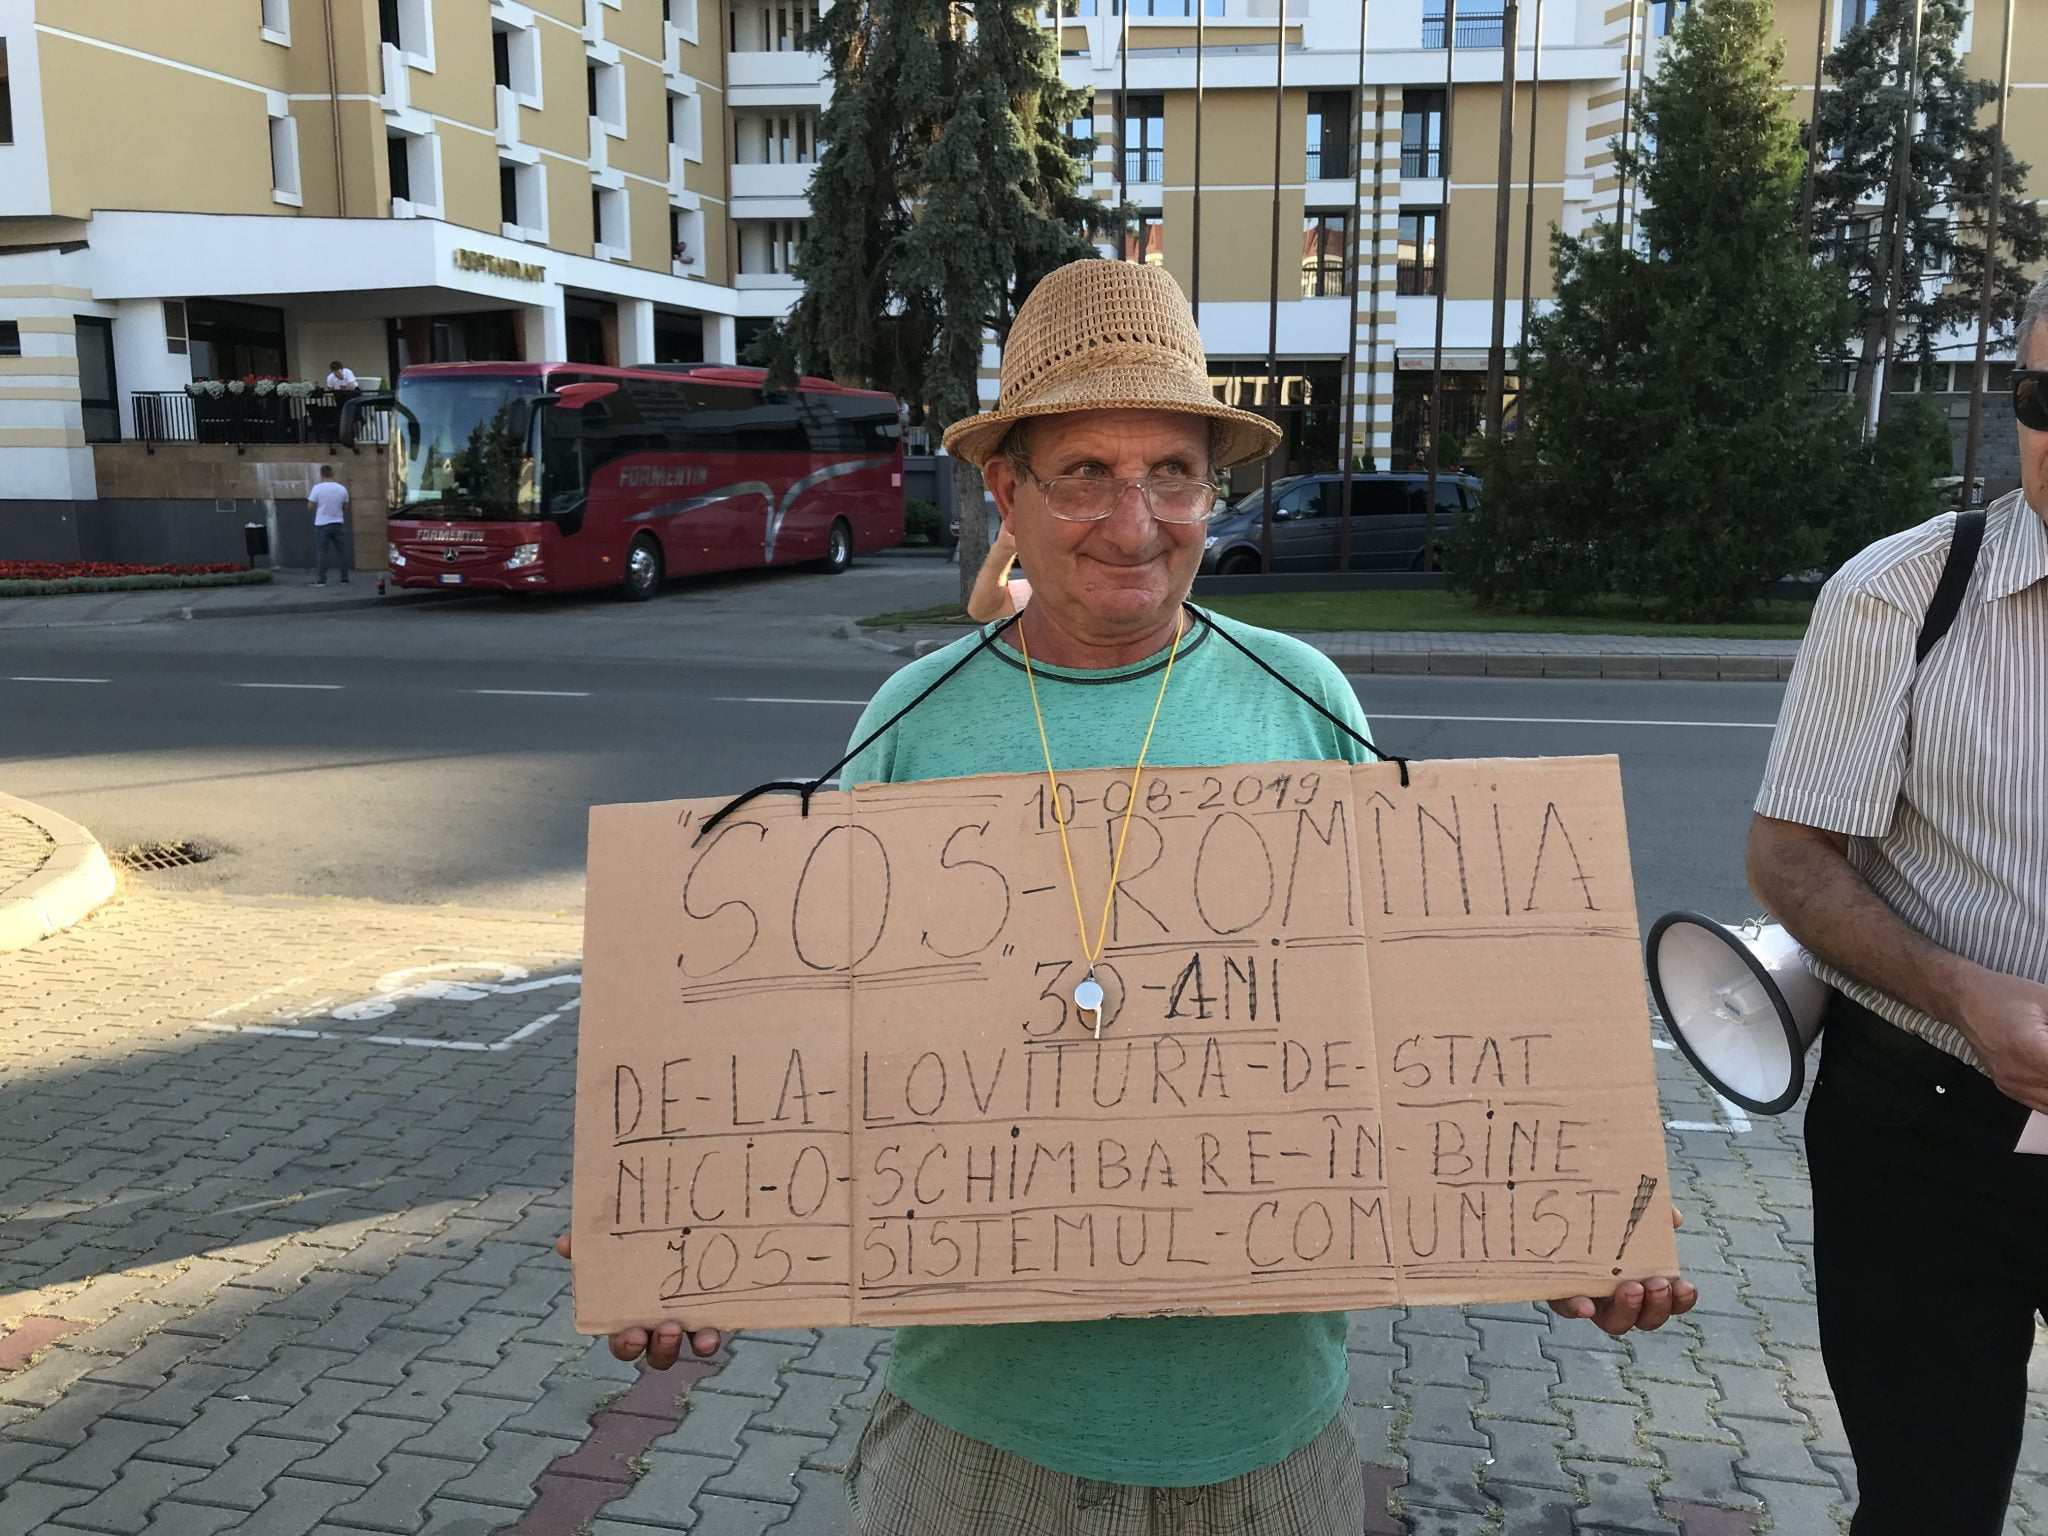 RESTAURANT
FORMENTIN
FORMENTIN
10-08-2019
"S.O.S"-ROMÎNIA
30-ANI
DE-LA-LOVITURA-DE-STAT
NICI-O-SCHIMBARE-ÎN-BINE
JOS-SISTEMUL-COMUNIST!